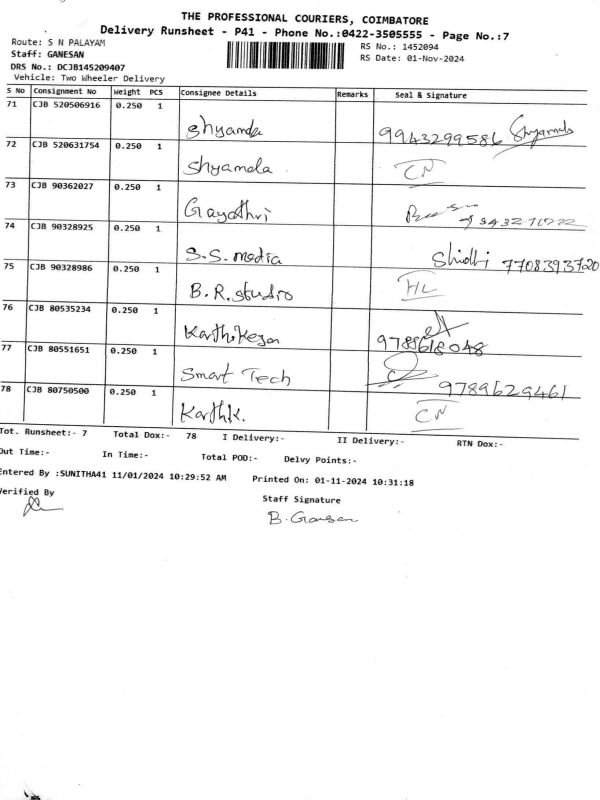 THE PROFESSIONAL COURIERS, COIMBATORE
Delivery Runsheet - P41 - Phone No.:0422-3505555 - Page No.:7
Route: S N PALAYAM
RS No.: 1452094
Staff: GANESAN
RS Date: 01-Nov-2024
DRS No.: DCJB145209407
Vehicle: Two Wheeler Delivery
S No Consignment No Weight PCS Consignee Details Remarks Seal & Signature
71 CJB 520506916 0.250 1
Shyamala 9943299586 Shyamala
72 CJB 520631754 0.250 1
Shyamala CN
73 CJB 90362027 0.250 1
Gayathri
74 CJB 90328925 0.250 1
S.S. media Shidhi 7708393720
75 CJB 90328986 0.250 1
B.R. studio HL
76 CJB 80535234 0.250 1
Karthikeyan 9789618048
77 CJB 80551651 0.250 1
Smart Tech 9789629461
78 CJB 80750500 0.250 1
Karthik. CN
Tot. Runsheet:- 7 Total Dox:- 78 I Delivery:- II Delivery:- RTN Dox:-
Out Time:- In Time:- Total POD:- Delvy Points:-
Entered By :SUNITHA41 11/01/2024 10:29:52 AM Printed On: 01-11-2024 10:31:18
Verified By
Staff Signature
B. Ganesan